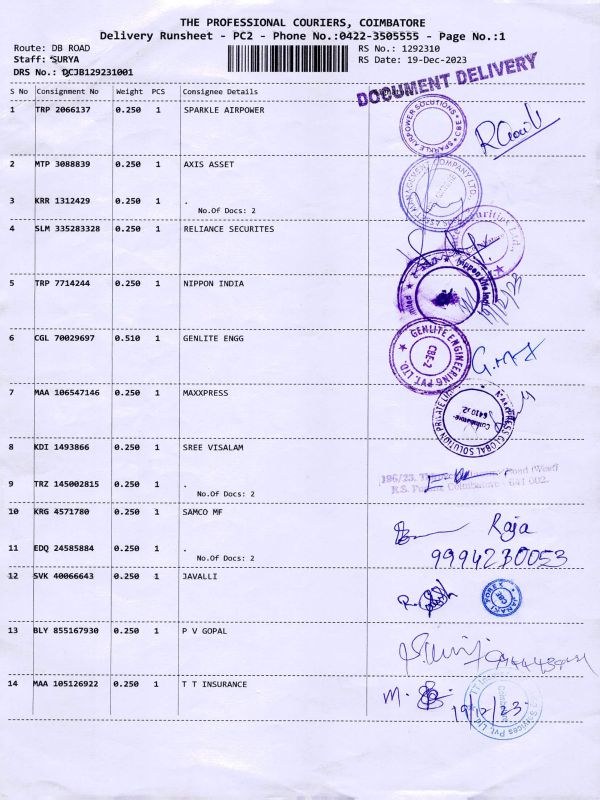 THE PROFESSIONAL COURIERS, COIMBATORE
Delivery Runsheet - PC2 - Phone No.:0422-3505555 - Page No.:1
Route: DB ROAD
RS No.: 1292310
Staff: SURYA
RS Date: 19-Dec-2023
DRS No.: DCJB129231001
DOCUMENT DELIVERY
S No Consignment No Weight PCS Consignee Details
1 TRP 2066137 0.250 1 SPARKLE AIRPOWER
SPARKLE AIRPOWER SOLUTIONS * CBE
2 MTP 3088839 0.250 1 AXIS ASSET
MANAGEMENT COMPANY LTD.
3 KRR 1312429 0.250 1 .
No.Of Docs: 2
4 SLM 335283328 0.250 1 RELIANCE SECURITES
Securities Ltd.
5 TRP 7714244 0.250 1 NIPPON INDIA
Nippon Life Ind
19/12/23
6 CGL 70029697 0.510 1 GENLITE ENGG
GENLITE ENGINEERING PVT. LTD.
CBE-2
7 MAA 106547146 0.250 1 MAXXPRESS
MAXXPRESS GLOBAL SOLUTION PRIVATE
Coimbatore
8 KDI 1493866 0.250 1 SREE VISALAM
9 TRZ 145002815 0.250 1 .
196/23.
Road (West)
R.S. Coimbatore - 641 002.
No.Of Docs: 2
10 KRG 4571780 0.250 1 SAMCO MF
Raja
11 EDQ 24585884 0.250 1 .
9994230053
No.Of Docs: 2
12 SVK 40066643 0.250 1 JAVALLI
CBE
13 BLY 855167930 0.250 1 P V GOPAL
14 MAA 105126922 0.250 1 T T INSURANCE
M.
19/12/23.
Services Pvt. Ltd
Coimbatore